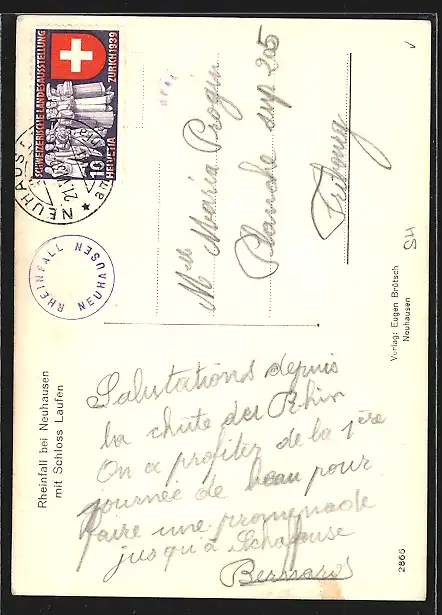 Rheinfall bei Neuhausen
mit Schloss Laufen
SCHWEIZERISCHE LANDESAUSSTELLUNG
ZURICH 1939
10 HELVETIA
NEUHAUSEN
RHEINFALL NEUHAUSEN
Mlle Maria Progin
Planche sup 205
Fribourg
SH
Salutations depuis
la chute du Rhin
On a profiter de la 1ère
journée de beau pour
faire une promenade
jusqu'à Schaffouse
Bernard
Verlag: Eugen Brütsch
Neuhausen
2866